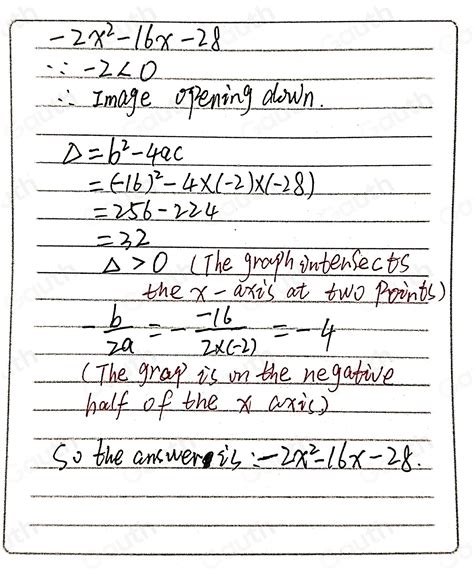 -2x²-16x-28
∵ -2<0
∴ Image opening down.
Δ=b²-4ac
=(-16)²-4×(-2)×(-28)
=256-224
=32
Δ>0 (The graph intensects
the x-axis at two points)
-b/2a = - -16/2×(-2) = -4
(The grap is on the negative
half of the x axis)
So the answer is:-2x²-16x-28.